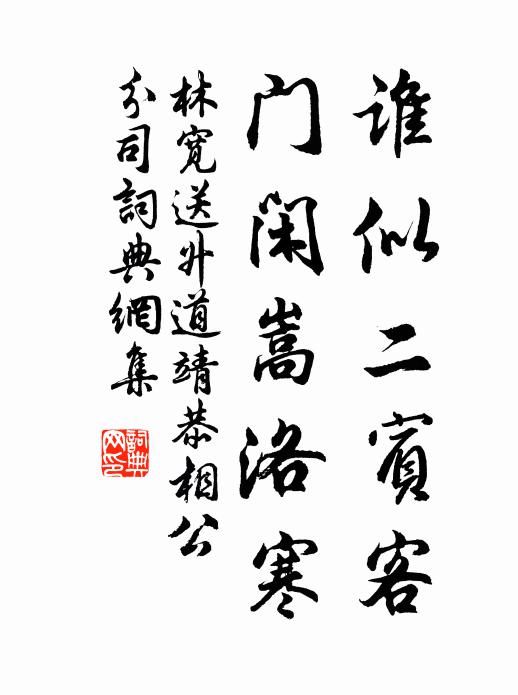 谁似二賓客
门闲嵩洛寒
林寬送升道靖恭相公
分司詞典網集
詞典网印